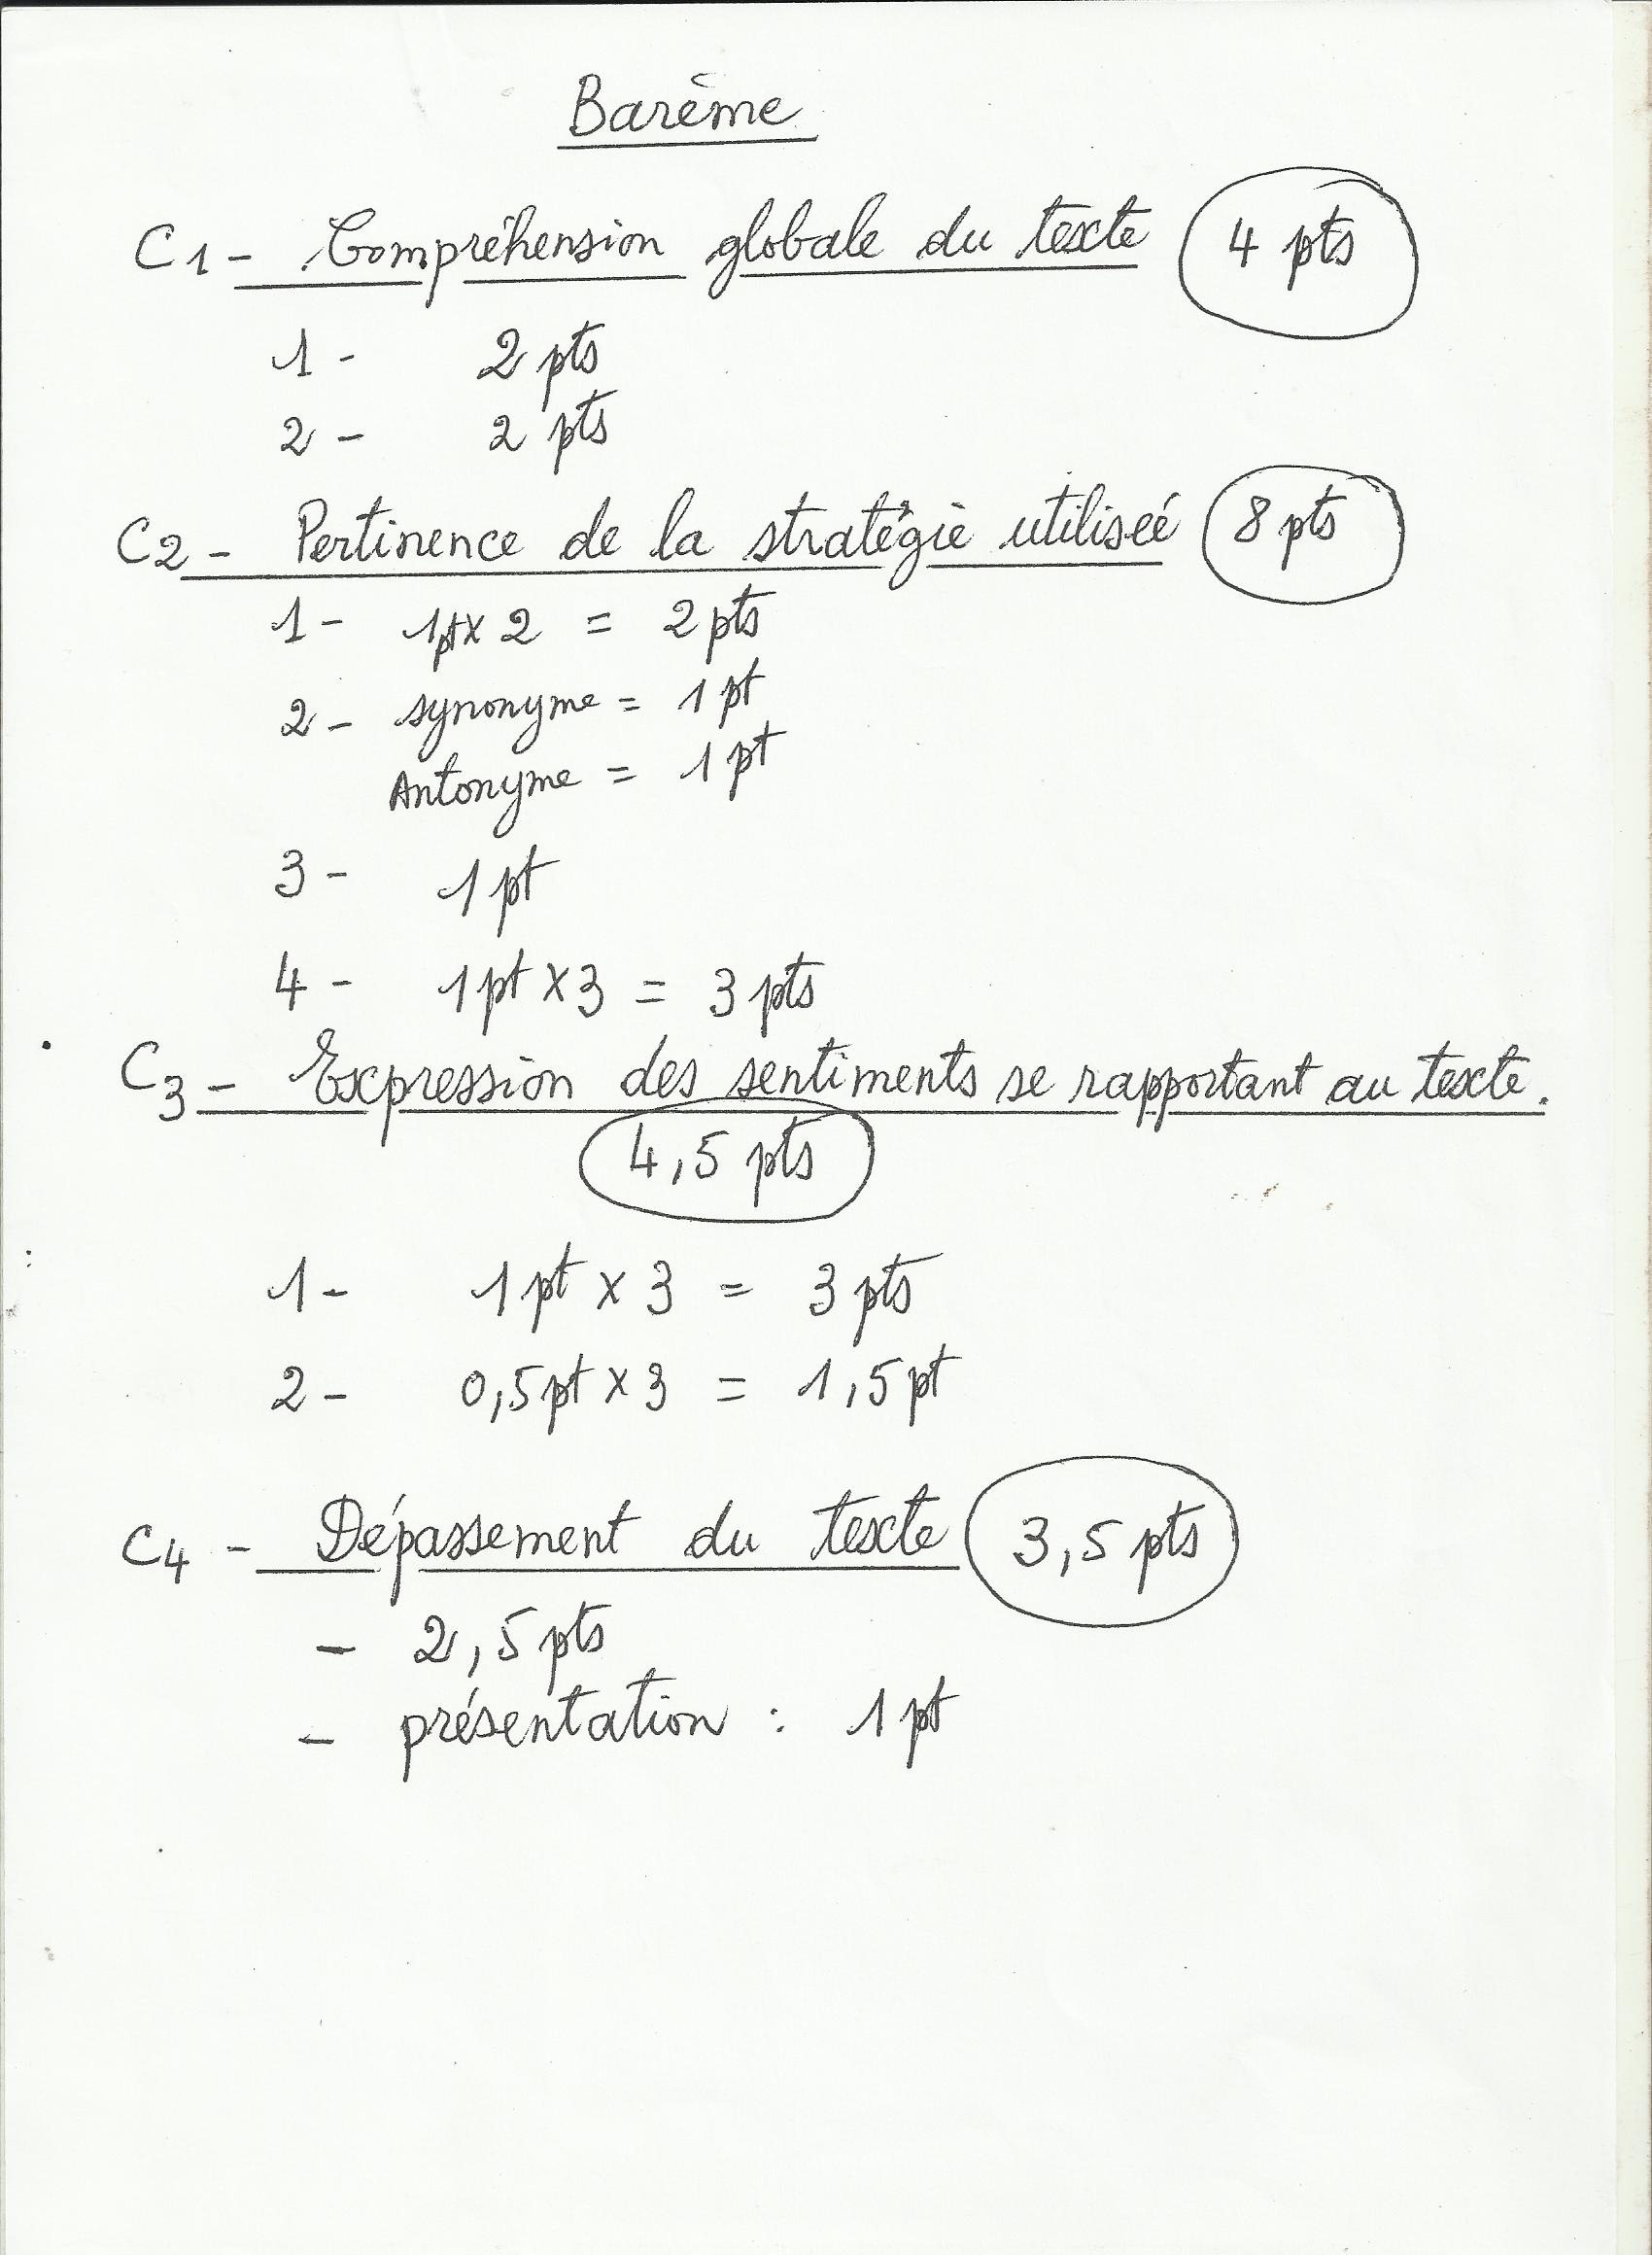 Barème
C1- Compréhension globale du texte 4 pts
1- 2 pts
2- 2 pts
C2- Pertinence de la stratégie utilisée 8 pts
1- 1pt x 2 = 2 pts
2- synonyme = 1 pt
Antonyme = 1 pt
3- 1 pt
4- 1 pt x 3 = 3 pts
C3- Expression des sentiments se rapportant au texte.
4,5 pts
1- 1 pt x 3 = 3 pts
2- 0,5 pt x 3 = 1,5 pt
C4- Dépassement du texte 3,5 pts
- 2,5 pts
- présentation : 1 pt